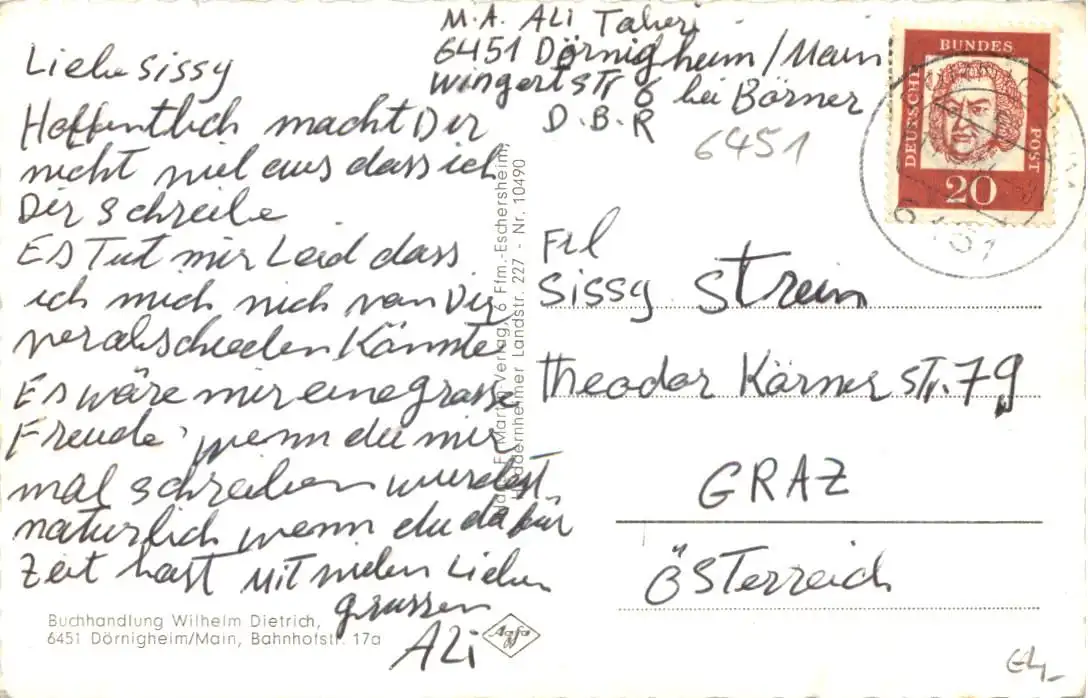 M.A. Ali Taheri
6451 Dörnigheim/Main
Wingertstr 6 bei Börner
D.B.R
6451
Liebe Sissy
Hoffentlich macht Dir
nicht viel aus dass ich
Dir schreibe
Es Tut mir Leid dass
ich mich nich von Dir
verabschieden Könnte
Es wäre mir eine grosse
Freude, wenn du mir
mal schreiben wurdest
naturlich wenn du dafür
Zeit hast Mit vielen Lieben
grussen
Ali
DEUTSCHE
BUNDES
POST
20
6451
Frl
Sissy Strein
Theodor Körner str. 79
GRAZ
Österreich
Verlag, 6 Ffm.-Eschersheim,
Heddernheimer Landstr. 227 - Nr. 10490
Buchhandlung Wilhelm Dietrich,
6451 Dörnigheim/Main, Bahnhofstr. 17a
Agfa